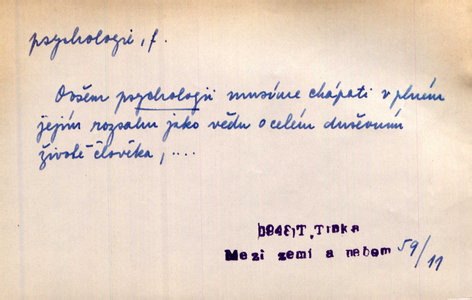 psychologie, f.
Ovšem psychologii musíme chápati v plném
jejím rozsahu jako vědu o celém duševním
životě člověka, ....
1948, T. Trnka
Mezi zemí a nebem 59/11